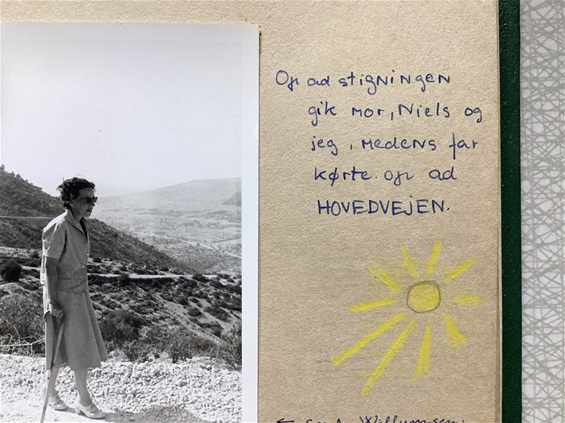 Op ad stigningen
gik mor, Niels og
jeg, medens far
kørte op ad
HOVEDVEJEN.
Willumsen